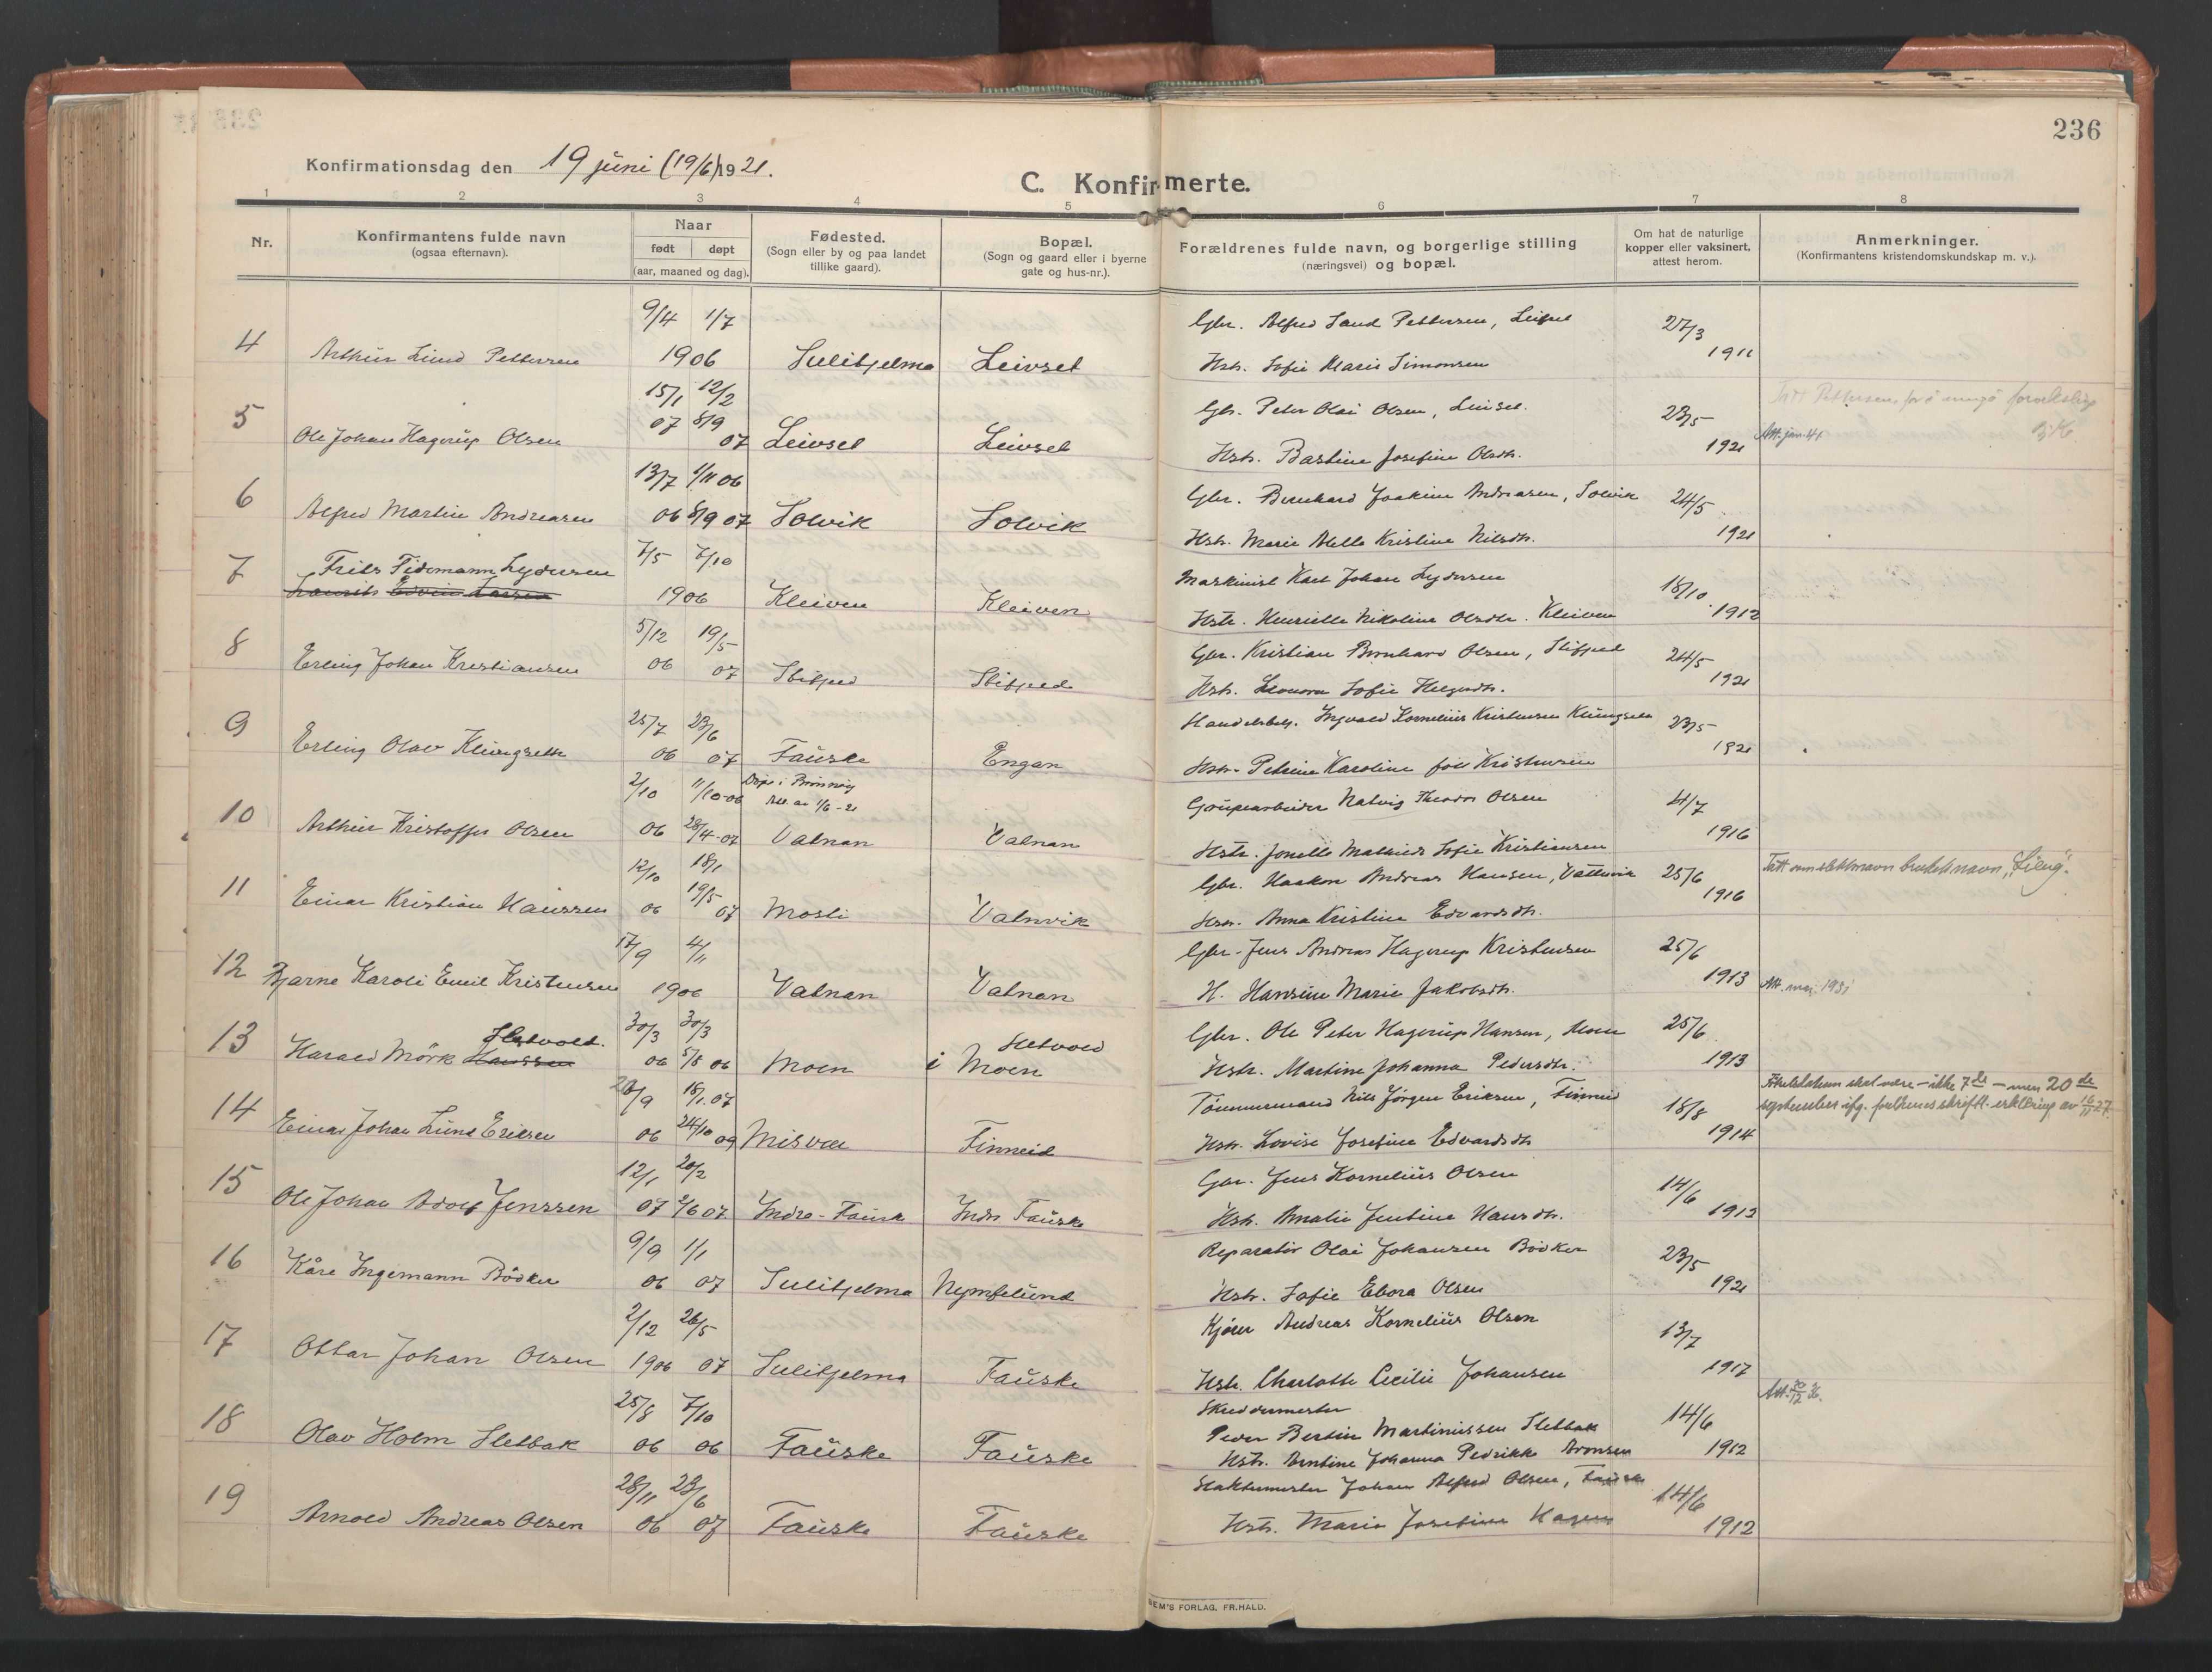 236
Konfirmationsdag den 19 juni (19/6) 1921.
C. Konfirmerte.
1 2 3 4 5 6 7 8
Nr.
Konfirmantens fulde navn
(ogsaa efternavn).
Naar
født døpt
(aar, maaned og dag).
Fødested.
(Sogn eller by og paa landet
tillike gaard).
Bopæl.
(Sogn og gaard eller i byerne
gate og hus-nr.).
Forældrenes fulde navn, og borgerlige stilling
(næringsvei) og bopæl.
Om hat de naturlige
kopper eller vaksinert,
attest herom.
Anmerkninger.
(Konfirmantens kristendomskundskap m. v.).
9/4 1/7 Gbr. Alfred Pettersen, 27/3
4 Arthur Lund Pettersen 1906 Sulitjelma Leivset Hstr. Sofie Marie Simonsen 1911
15/1 12/2 Gbr. Peter Olai Olsen, 23/5
5 Ole Johan Hagerup Olsen 07 8/9 07 Leivset Leivset Hstr. Bastine Josefine Olsdtr. 1921 Att. jan 41
13/7 1/11 06 Gbr. Bernhard Joakim Andreasen, Solvik 24/5
6 Alfred Martin Andreasen 06 8/9 07 Solvik Solvik Hstr. Marie Kristine Nilsdtr. 1921
7 Frits Tidemann Lydersen 7/5 7/10 Maskinist Karl Johan Lydersen 18/10
Laurits Edvin Larsen 1906 Kleiven Kleiven Hstr. Henriette Nikoline Olsdtr. Kleiven 1912
5/12 19/5 Gbr. Kristian Bernhard Olsen, 24/5
8 Erling Johan Kristiansen 06 07 Hstr. Leonora Sofie 1921
25/7 23/6 Handelsbetj. Ingvald Kornelius Kristensen Klungseth 23/5
9 Erling Olav Klungseth 06 07 Fauske Engan Hstr. Petrine Karoline 1921
2/10 11/10-06 Døpt i Brønnøy
Att. av 1/6-21 Grubearbeider Theodor Olsen 4/7
10 Arthur Kristoffer Olsen 06 28/4-07 Vatnan Vatnan Hstr. Sofie Kristiansen 1916
12/10 18/1 Gbr. Haakon Andreas Hansen, Vatnvik 25/6 Tatt som slektsnavn bruketsnavn,
11 Einar Kristian Hanssen 06 19/5 07 Mosti Vatnvik Hstr. Anna Kristine Edvardsdtr. 1916
17/9 4/11 Gbr. Jens Andreas Hagerup Kristensen 25/6
12 Bjarne Karoli Emil Kristensen 1906 Vatnan Vatnan H. Hansine Marie Jakobsdtr. 1913 Att. mai 1931
13 Sletvold. 30/3 30/3 Sletvold Gbr. Ole Peter Hagerup Hansen, Moen 25/6
Harald Mörk Hanssen 06 5/8 06 Moen i Moen Hstr. Martine Johanna Pedersdtr. 1913
20/9 18/1.07 Tömmermand Nils Jörgen Eriksen, Finneid 18/8 Fødselsdatum skal være - ikke 7de - men 20de
14 Einar Johan Lund Eriksen 06 24/10 09 Misvær Finneid Hstr. Lovise Josefine Edvardsdtr 1914 september ifg. skriftl. erklæring av 16/11 27.
12/1 20/2 Gbr. Jens Kornelius Olsen 14/6
15 Ole Johan Adolf Jenssen 07 2/6 07 Indre-Fauske Indre Fauske Hstr. Amalie Jentine Hansdtr. 1912
9/9 1/1 Reparatör Olai Johansen Bödker 23/5
16 Kåre Ingemann Bödker 06 07 Sulitjelma Nymfelund Hstr. Sofie Ebora Olsen 1921
2/12 26/5 Kjörer Andreas Kornelius Olsen 13/7
17 Ottar Johan Olsen 1906 07 Sulitjelma Fauske Hstr. Charlotte Cecilie Johansen 1917
25/8 7/10 Skreddermester 14/6 Att. 30/12 36.
18 Olav Holm Sletbak 06 06 Fauske Fauske Peder Bertin Martinussen Sletbak
Hstr. Arntine Johanna Pedrikke Aronsen 1912
28/11 23/6 Slaktermester Johan Alfred Olsen, Fauske 14/6
19 Arnold Andreas Olsen 06 07 Fauske Fauske Hstr. Marie Josefine Hagen 1912
SEM'S FORLAG, FR.HALD.